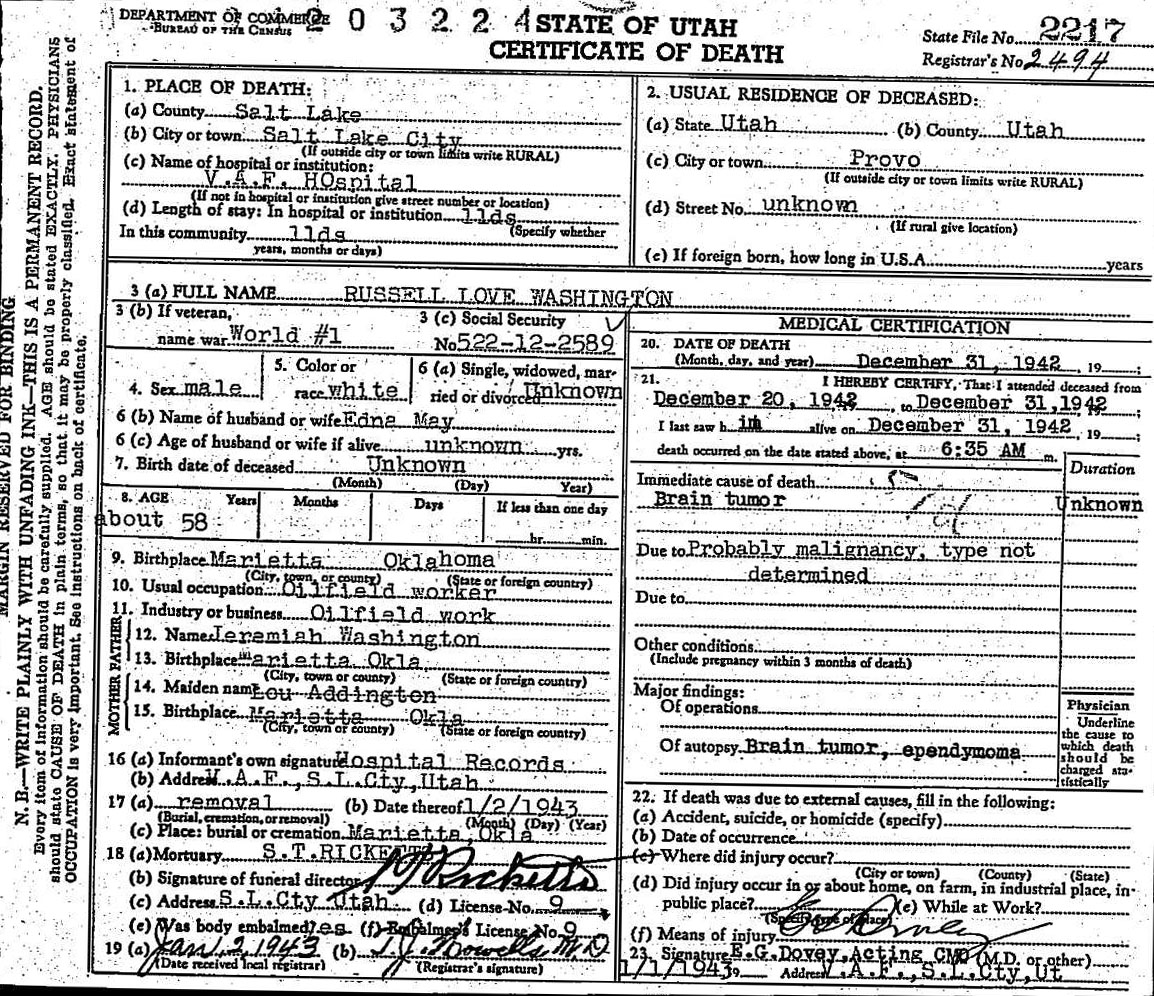 DEPARTMENT OF COMMERCE
BUREAU OF THE CENSUS
2 0 3 2 2 4
STATE OF UTAH
CERTIFICATE OF DEATH
State File No. 2217
Registrar's No. 2494
MARGIN RESERVED FOR BINDING
N. B.—WRITE PLAINLY WITH UNFADING INK—THIS IS A PERMANENT RECORD.
Every item of information should be carefully supplied. AGE should be stated EXACTLY. PHYSICIANS
should state CAUSE OF DEATH in plain terms, so that it may be properly classified. Exact statement of
OCCUPATION is very important. See instructions on back of certificate.
1. PLACE OF DEATH:
(a) County Salt Lake
(b) City or town Salt Lake City
(If outside city or town limits write RURAL)
(c) Name of hospital or institution:
V.A.F. HOspital
(If not in hospital or institution give street number or location)
(d) Length of stay: In hospital or institution 11ds
(Specify whether
In this community 11ds
years, months or days)
2. USUAL RESIDENCE OF DECEASED:
(a) State Utah (b) County Utah
(c) City or town Provo
(If outside city or town limits write RURAL)
(d) Street No. unknown
(If rural give location)
(e) If foreign born, how long in U.S.A. years
3 (a) FULL NAME RUSSELL LOVE WASHINGTON
3 (b) If veteran,
name war World #1
3 (c) Social Security
No. 522-12-2589
4. Sex male
5. Color or
race white
6 (a) Single, widowed, mar-
ried or divorced Unknown
6 (b) Name of husband or wife Edna May
6 (c) Age of husband or wife if alive unknown yrs.
7. Birth date of deceased Unknown
(Month) (Day) Year)
8. AGE Years Months Days If less than one day
about 58
hr. min.
9. Birthplace Marietta Oklahoma
(City, town, or county) (State or foreign country)
10. Usual occupation Oilfield worker
11. Industry or business Oilfield work
FATHER
12. Name Jeremiah Washington
13. Birthplace Marietta Okla
(City, town or county) (State or foreign country)
MOTHER
14. Maiden name Lou Addington
15. Birthplace Marietta Okla
(City, town or county) (State or foreign country)
16 (a) Informant's own signature Hospital Records
(b) Address V.A.F., S.L.Cty, Utah
17 (a) removal (b) Date thereof 1/2/1943
(Burial, cremation, or removal) (Month) (Day) (Year)
(c) Place: burial or cremation Marietta, Okla
18 (a) Mortuary S.T.RICKETTS
(b) Signature of funeral director Ricketts
(c) Address S.L.Cty Utah (d) License No. 9
(e) Was body embalmed yes (f) Embalmer's License No. 9
19 (a) Jan. 2, 1943 (b) M D
(Date received local registrar) (Registrar's signature)
MEDICAL CERTIFICATION
20. DATE OF DEATH
(Month, day, and year) December 31, 1942, 19 ;
21. I HEREBY CERTIFY, That I attended deceased from
December 20, 1942 to December 31, 1942 ;
I last saw h im alive on December 31, 1942, 19 ;
death occurred on the date stated above, at 6:35 AM m.
Duration
Immediate cause of death
Brain tumor Unknown
Due to Probably malignancy, type not
determined
Due to
Other conditions
(Include pregnancy within 3 months of death)
Major findings:
Of operations
Of autopsy Brain tumor, ependymoma
Physician
Underline
the cause to
which death
should be
charged sta-
tistically
22. If death was due to external causes, fill in the following:
(a) Accident, suicide, or homicide (specify)
(b) Date of occurrence
(c) Where did injury occur?
(City or town) (County) (State)
(d) Did injury occur in or about home, on farm, in industrial place, in
public place? (e) While at Work?
(Specify type of place)
(f) Means of injury
23. Signature E.G.Dovey, Acting CMO (M.D. or other)
1/1/1943 Address V.A.F., S.L.Cty, Ut